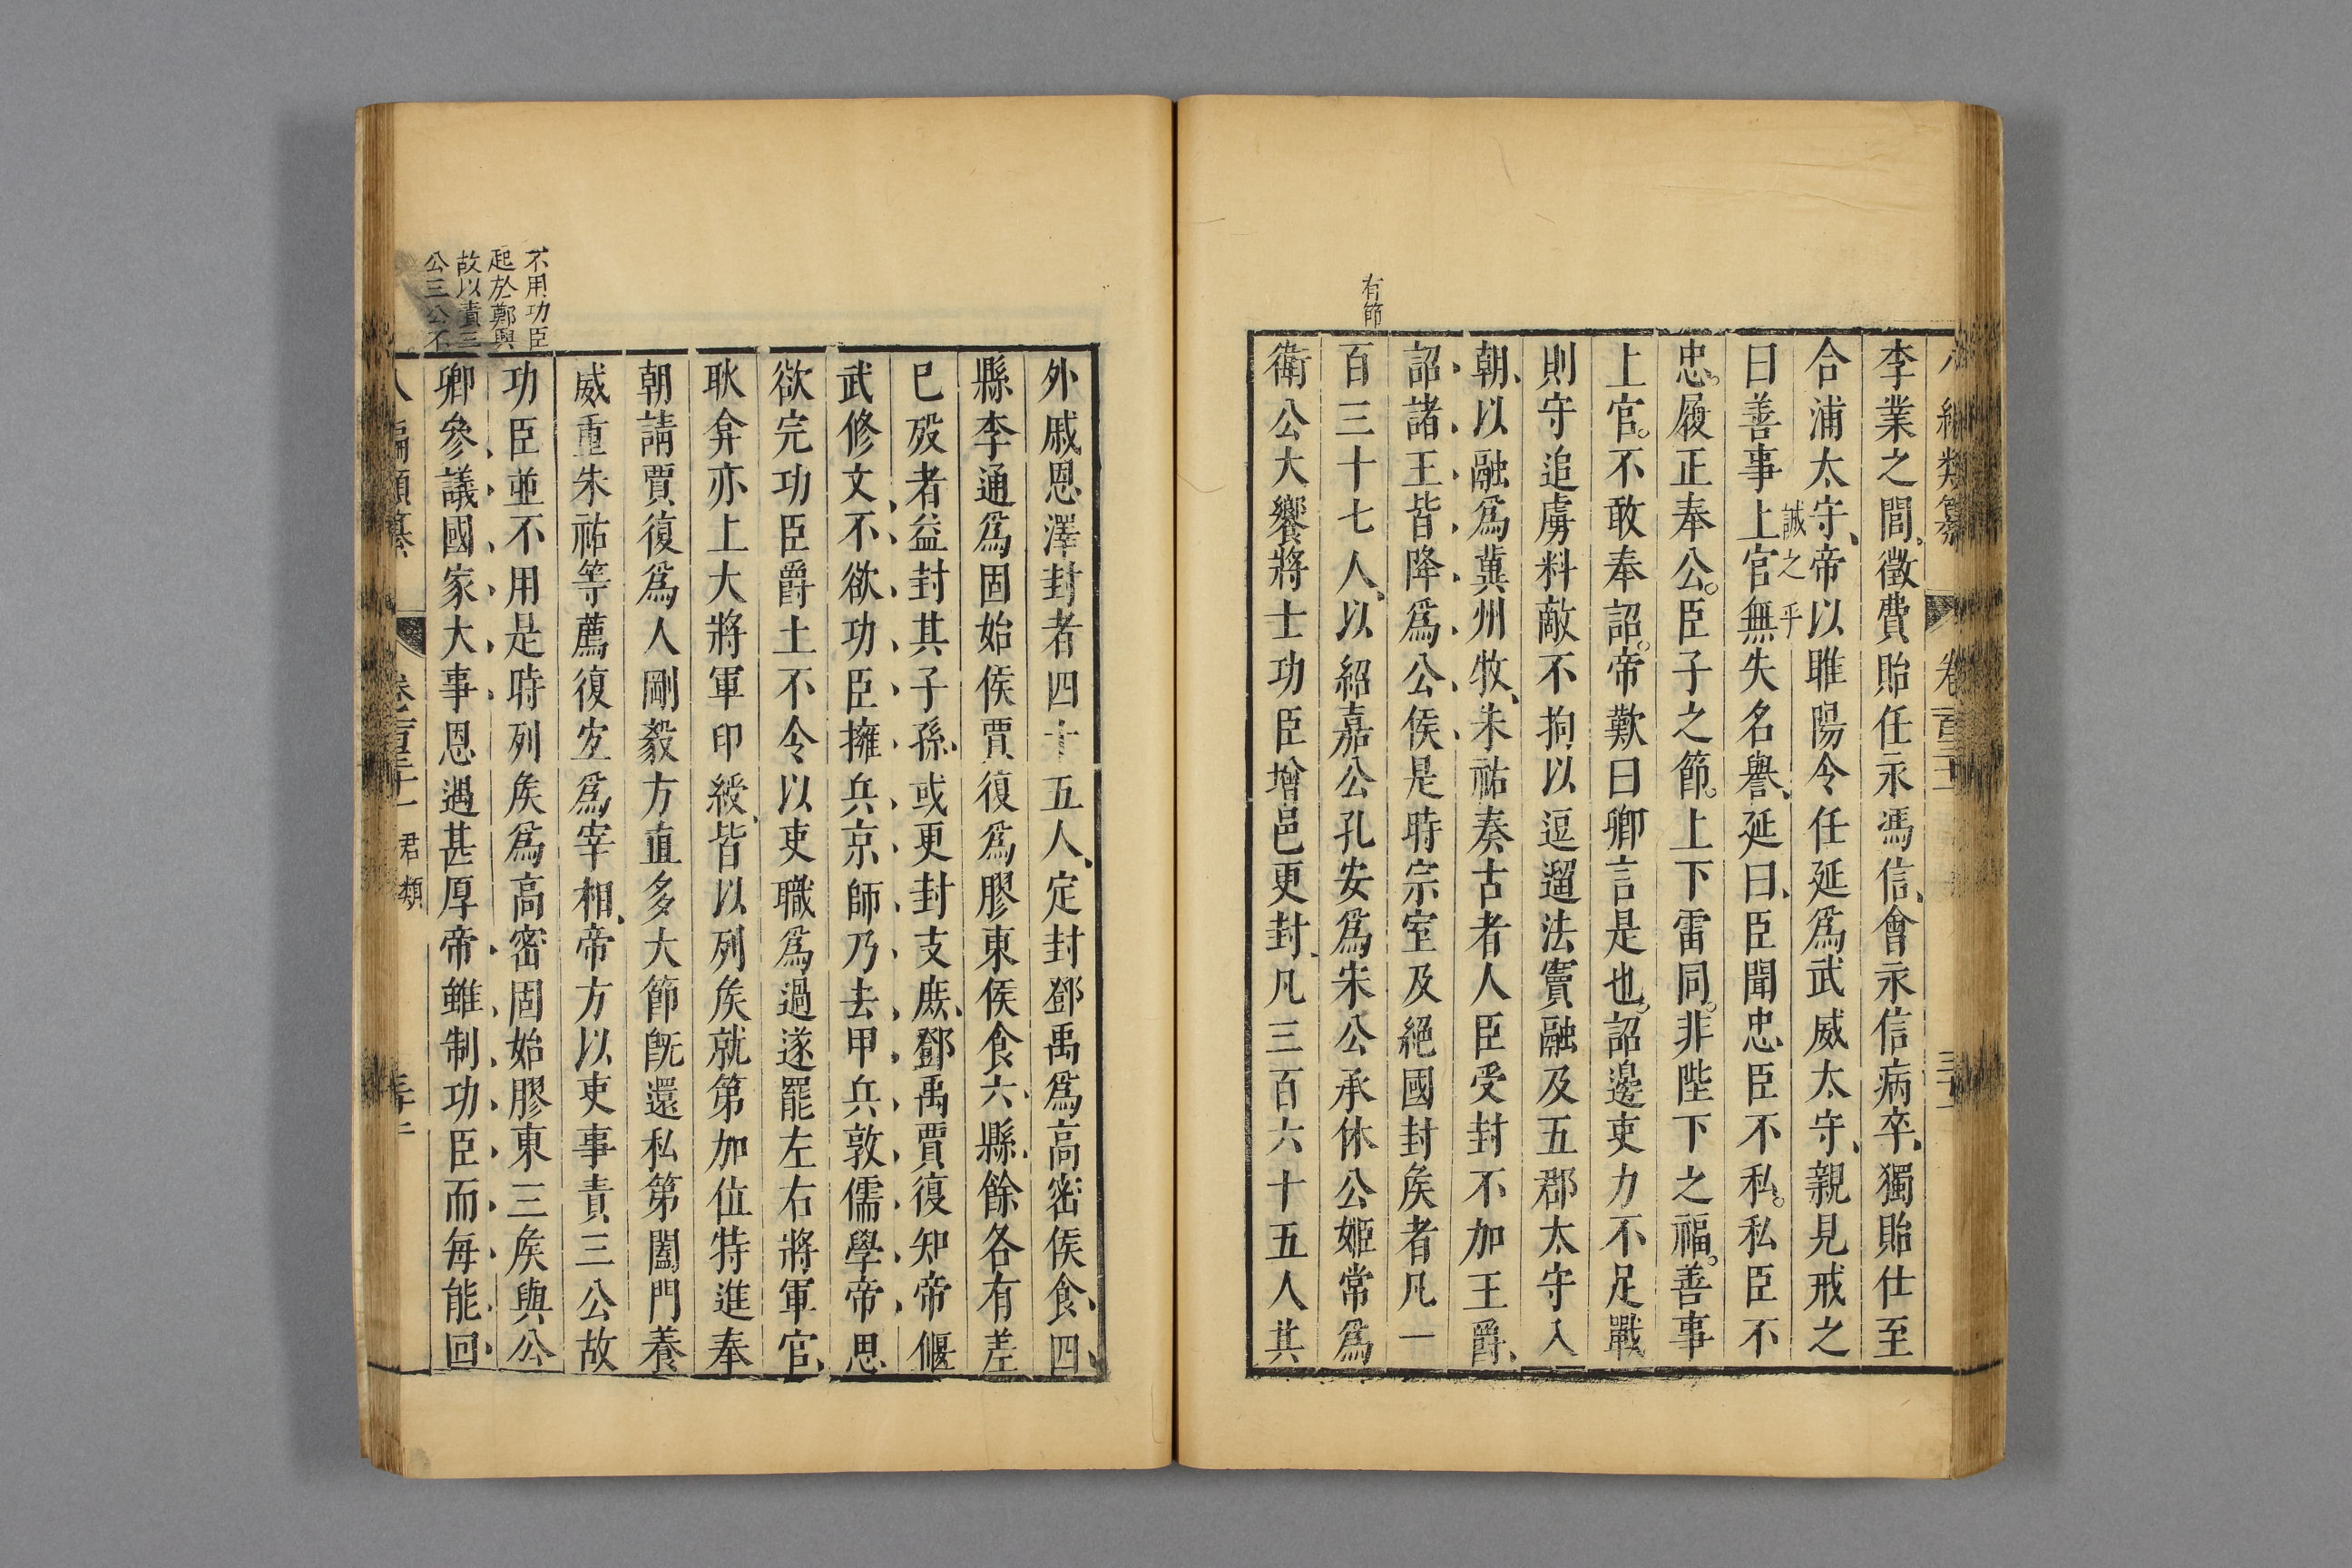 李業之閭徵費貽任永馮信會永信病卒獨貽仕至
合浦太守帝以睢陽令任延爲武威太守親見戒之
誠之乎
曰善事上官無失名譽延曰臣聞忠臣不私私臣不
忠履正奉公臣子之節上下雷同非陛下之福善事
上官不敢奉詔帝歎曰卿言是也詔邊吏力不足戰
則守追虜料敵不拘以逗遛法竇融及五郡太守入
朝以融爲冀州牧朱祐奏古者人臣受封不加王爵
詔諸王皆降爲公侯是時宗室及絕國封矦者凡一
有節
百三十七人以紹嘉公孔安爲宋公承休公姬常爲
衛公大饗將士功臣增邑更封凡三百六十五人其
外戚恩澤封者四十五人定封鄧禹爲高密侯食四
縣李通爲固始侯賈復爲膠東侯食六縣餘各有差
已歿者益封其子孫或更封支庶鄧禹賈復知帝偃
武修文不欲功臣擁兵京師乃去甲兵敦儒學帝思
欲完功臣爵土不令以吏職爲過遂罷左右將軍官
耿弇亦上大將軍印綬皆以列矦就第加位特進奉
朝請賈復爲人剛毅方直多大節旣還私第闔門養
威重朱祐等薦復宜爲宰相帝方以吏事責三公故
不用功臣
起於鄭興
故以責三
公三公不
功臣並不用是時列矦爲高密固始膠東三矦與公
卿參議國家大事恩遇甚厚帝雖制功臣而每能回
君類